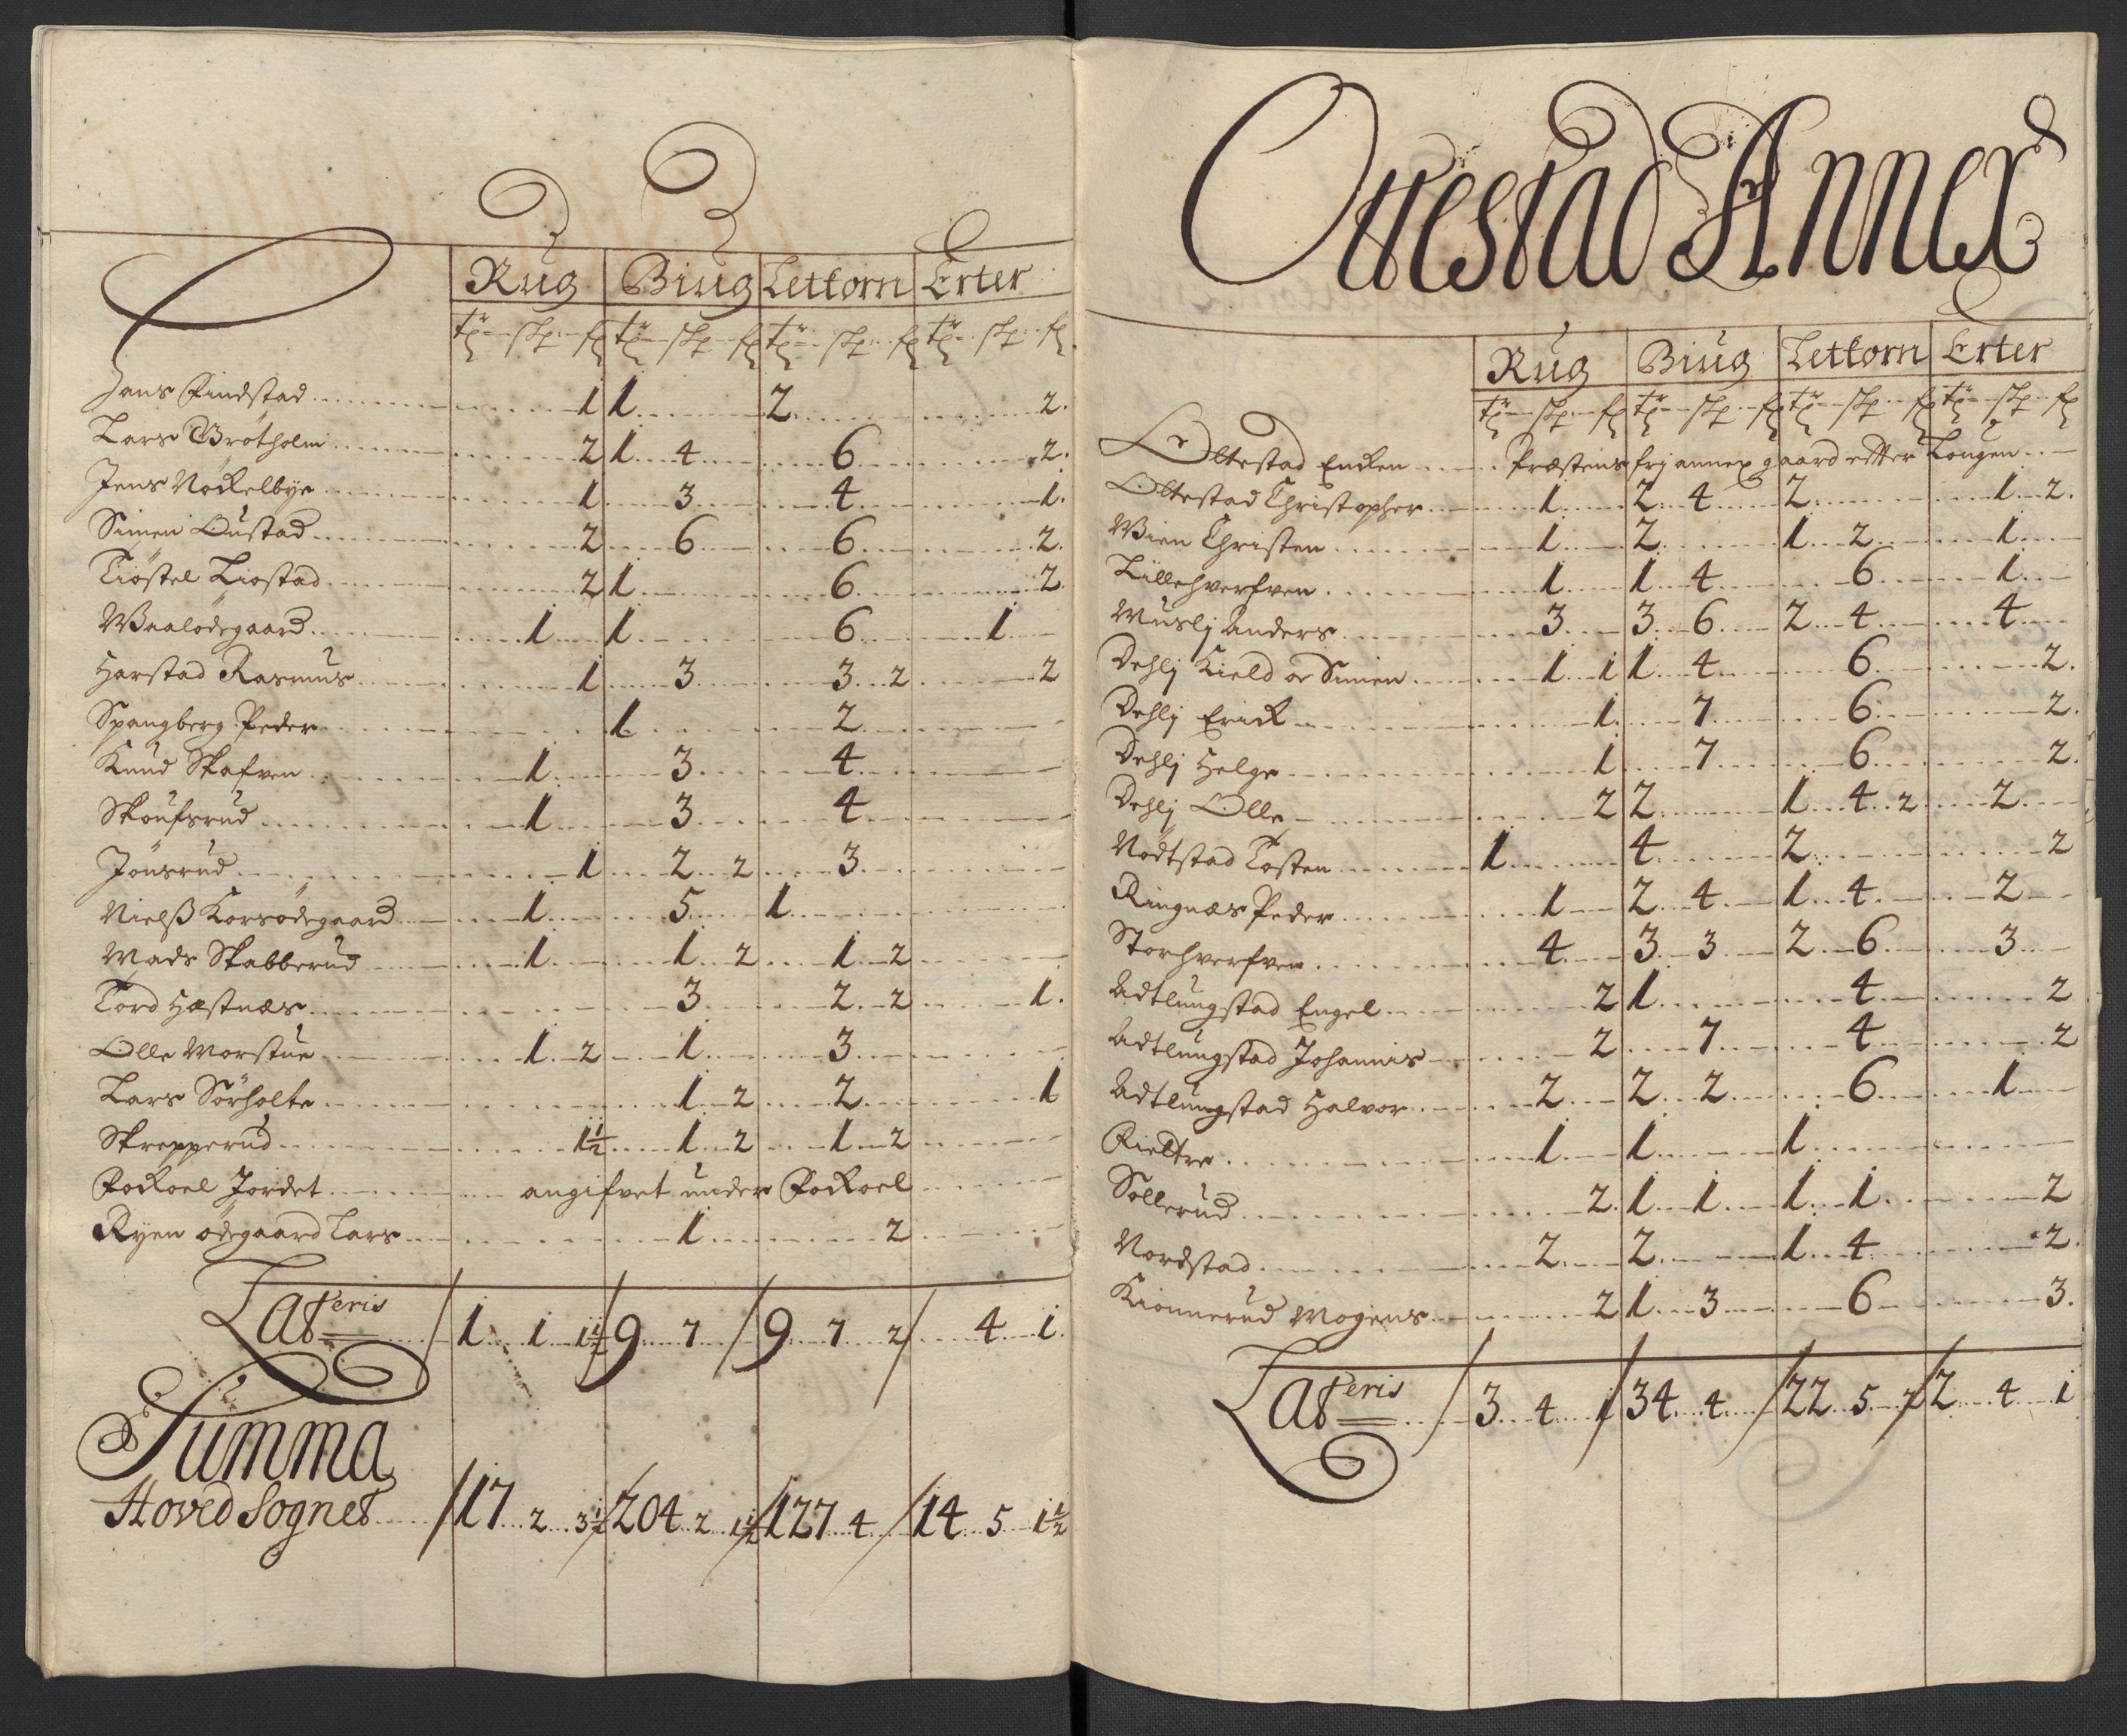 Rug Biug Letkorn Erter
tr skp fr tr skp fr tr skp fr tr skp fr
Hans Findstad 1 1 2 2
Lars Brotholm 2 1 4 6 2
Jens Nockelbye 1 3 4 1
Simen Oustad 2 6 6 2
Tiostel Liostad 2 1 6 2
Waalodegaard 1 1 6 1
Harstad Rasmus 1 3 3 2 2
Spangberg Peder 1 2
Knud Skafven 1 3 4
Skoufsrud 1 3 4
Jonsrud 1 2 2 3
Nielß Korsodegaard 1 5 1
Mads Skabberud 1 1 2 1 2
Tord Hæstnæs 3 2 2 1
Olle Morstue 1 2 1 3
Lars Sörholte 1 2 2 1
Skrepperud 1½ 1 2 1 2
Fockoel Jordet angifvet under Fockoel
Ryen ödegaard Lars 1 2
Lateris 1 1 1½ 9 7 9 7 2 4 1
Summa
Hoved Sognet 17 2 3½ 204 2 1½ 127 4 14 5 1½
Ottestad Annex
Rug Biug Letkorn Erter
tr skp fr tr skp fr tr skp fr tr skp fr
Ottestad Encken Præstens frj annex gaard efter Lougen
Ottestad Christopher 1 2 4 2 1 2
Wien Christen 1 2 1 2 1
Lillehverfven 1 1 4 6 1
Muslj Anders 3 3 6 2 4 4
Dehlj Kield or Simen 1 1 1 4 6 2
Dehlj Erick 1 7 6 2
Dehlj Helge 1 7 6 2
Dehlj Olle 2 2 1 4 2 2
Nodtstad Tosten 1 4 2 2
Ringnæs Peder 1 2 4 1 4 2
Storhverfven 4 3 3 2 6 3
Adtlungstad Engel 2 1 4 2
Adtlungstad Johannis 2 7 4 2
Adtlungstad Halvor 2 2 2 6 1
Rieltre 1 1 1
Sollerud 2 1 1 1 1 2
Nordstad 2 2 1 4 2
Kionnerud Mogens 2 1 3 6 3
Lateris 3 4 1 34 4 22 5 2 2 4 1